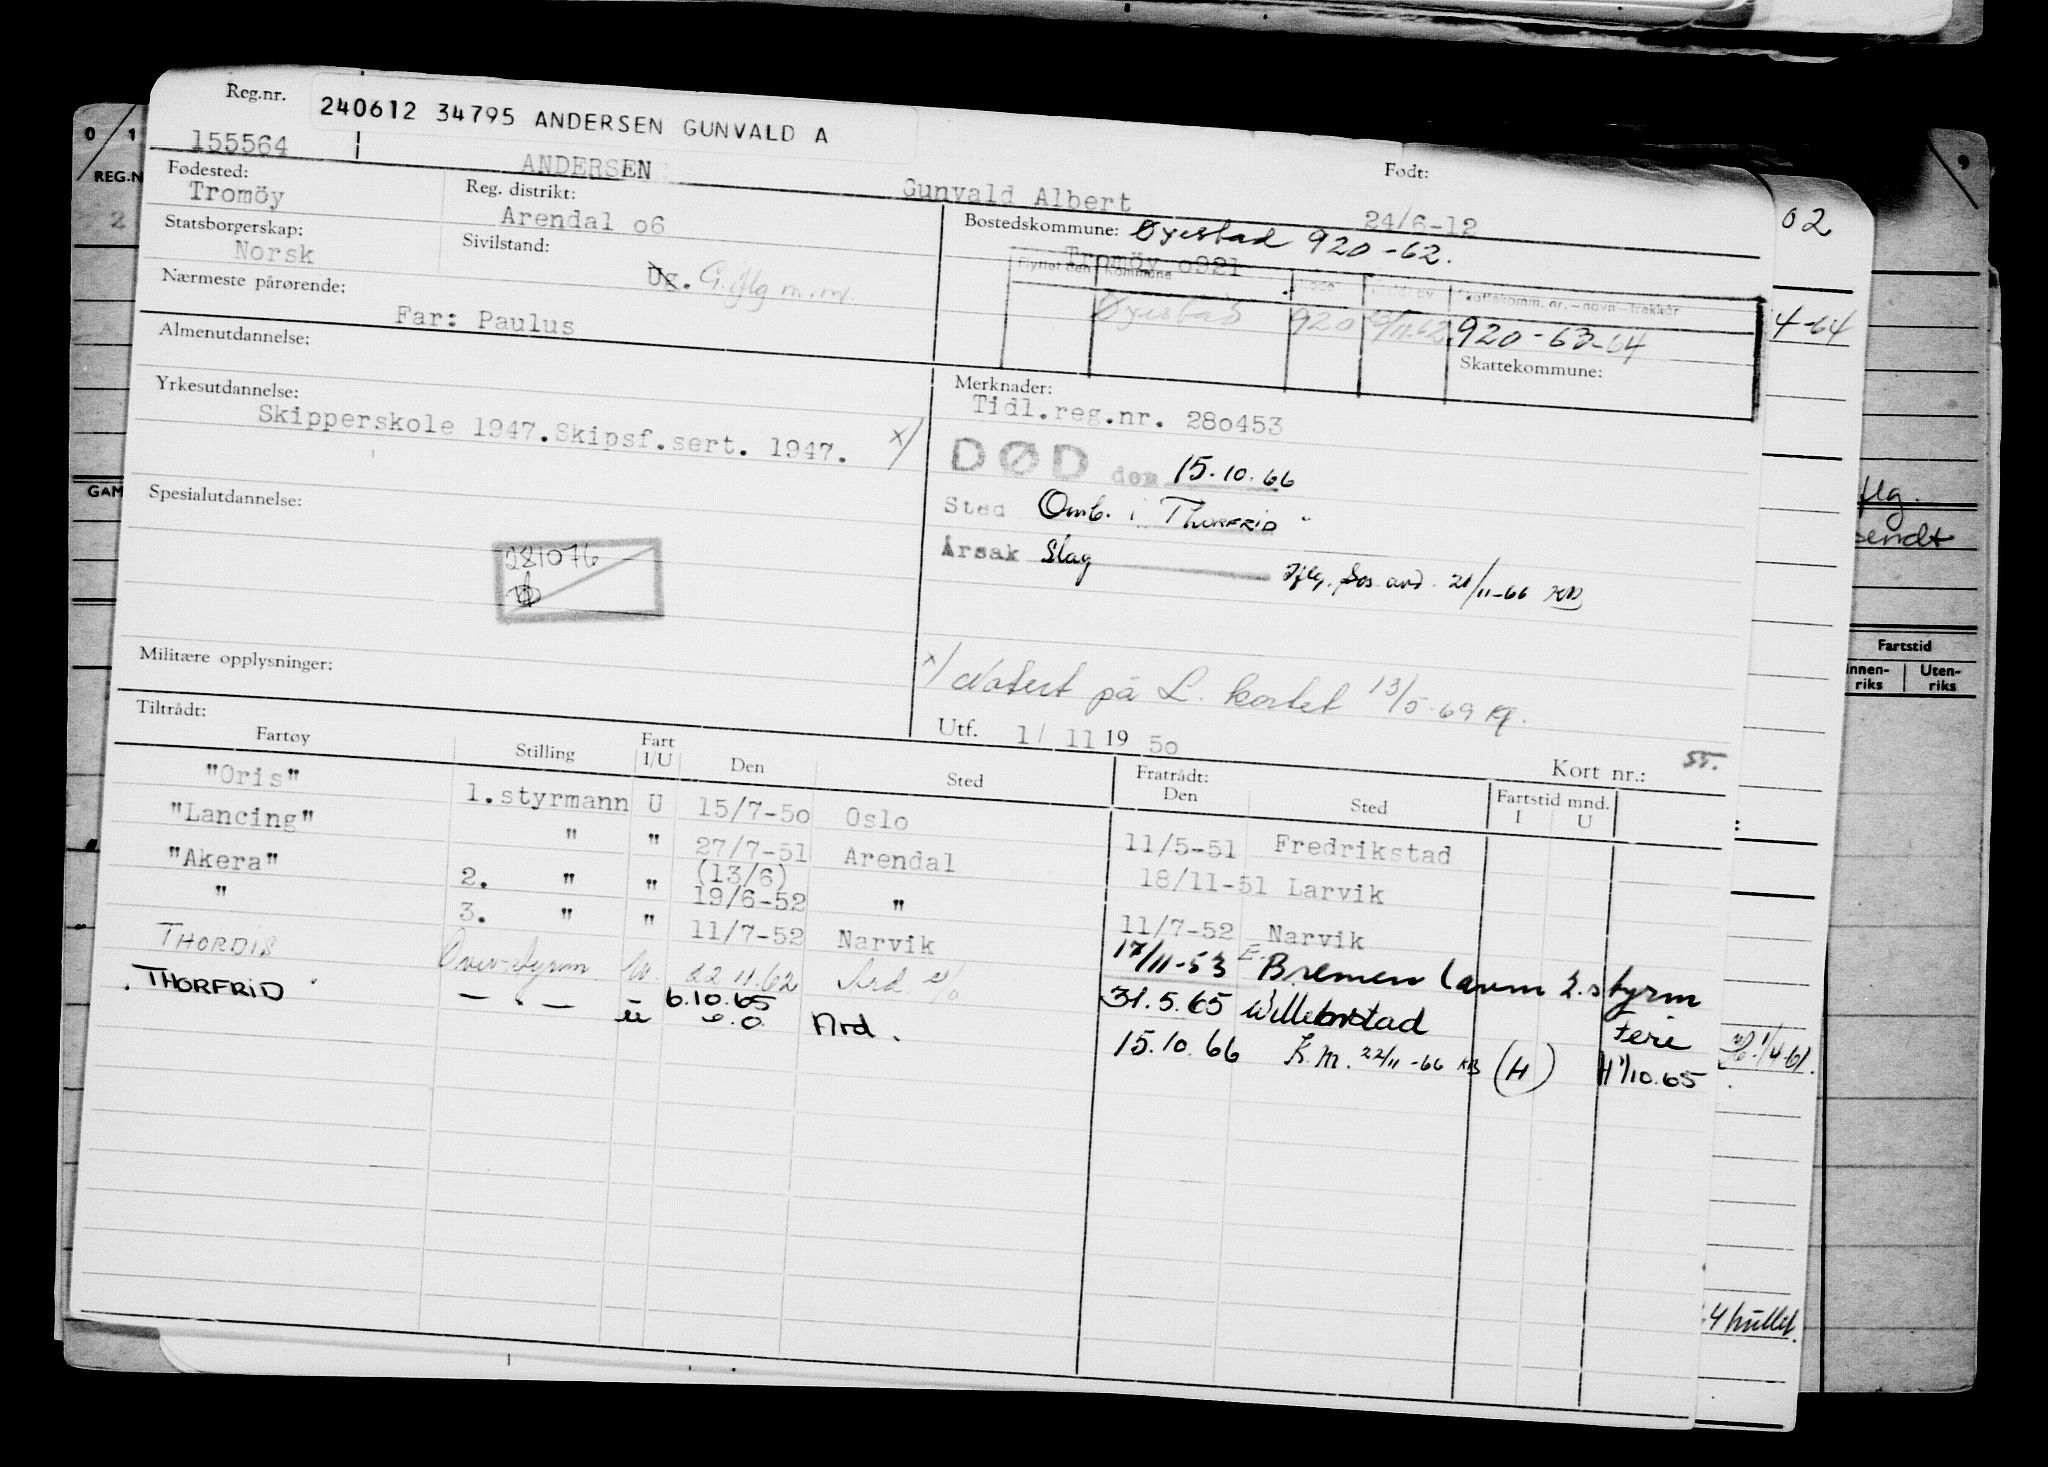 Reg.nr. 240612 34795 ANDERSEN GUNVALD A
155564 ANDERSEN Gunvald Albert
Født: 24/6-12
Fødested: Tromöy
Reg. distrikt: Arendal o6
Bostedskommune: Øyestad 920-62.
Tromöy o921
Statsborgerskap: Norsk
Sivilstand: Ug. G. iflg m.m.
Flyttet den Kommune Kode
Øyestad 920 920-63-64
Skattekommune:
Nærmeste pårørende: Far: Paulus
Almenutdannelse:
Yrkesutdannelse:
Skipperskole 1947. Skipsf.sert. 1947. x/
Merknader:
Tidl.reg.nr. 28o453
DØD den 15.10.66
Sted Omb. i "THORFRID"
Årsak Slag
Iflg. Sos. avd. 21/11-66 KB
Spesialutdannelse:
281076
Militære opplysninger:
x/ Notert på L. kortet 13/5-69
Utf. 1/11 19 5o
Kort nr.: 55.
Tiltrådt:
Fartøy Stilling Fart I/U Den Sted Fratrådt: Den Sted Fartstid mnd. I U
"Oris" 1.styrmann U 15/7-5o Oslo 11/5-51 Fredrikstad
"Lancing" " " 27/7-51 Arendal 18/11-51 Larvik
"Akera" 2. " " (13/6) 19/6-52 " 11/7-52 Narvik
" 3. " " 11/7-52 Narvik 17/11-53 Bremen (avm 2. styrm
THORDIS Overstyrm U. 22.11.62 Ard 31.5.65 Willebrstad Ferie
THORFRID — " — U 6.10.65 Ard. 15.10.66 K.M. 22/11-66 KB (H) H 1/10.65
0 1
REG.N
2
GAM
9
02
4-64
flg.
sendt
Fartstid
Innen-riks Uten-riks
1/4-61.
4 hullet.